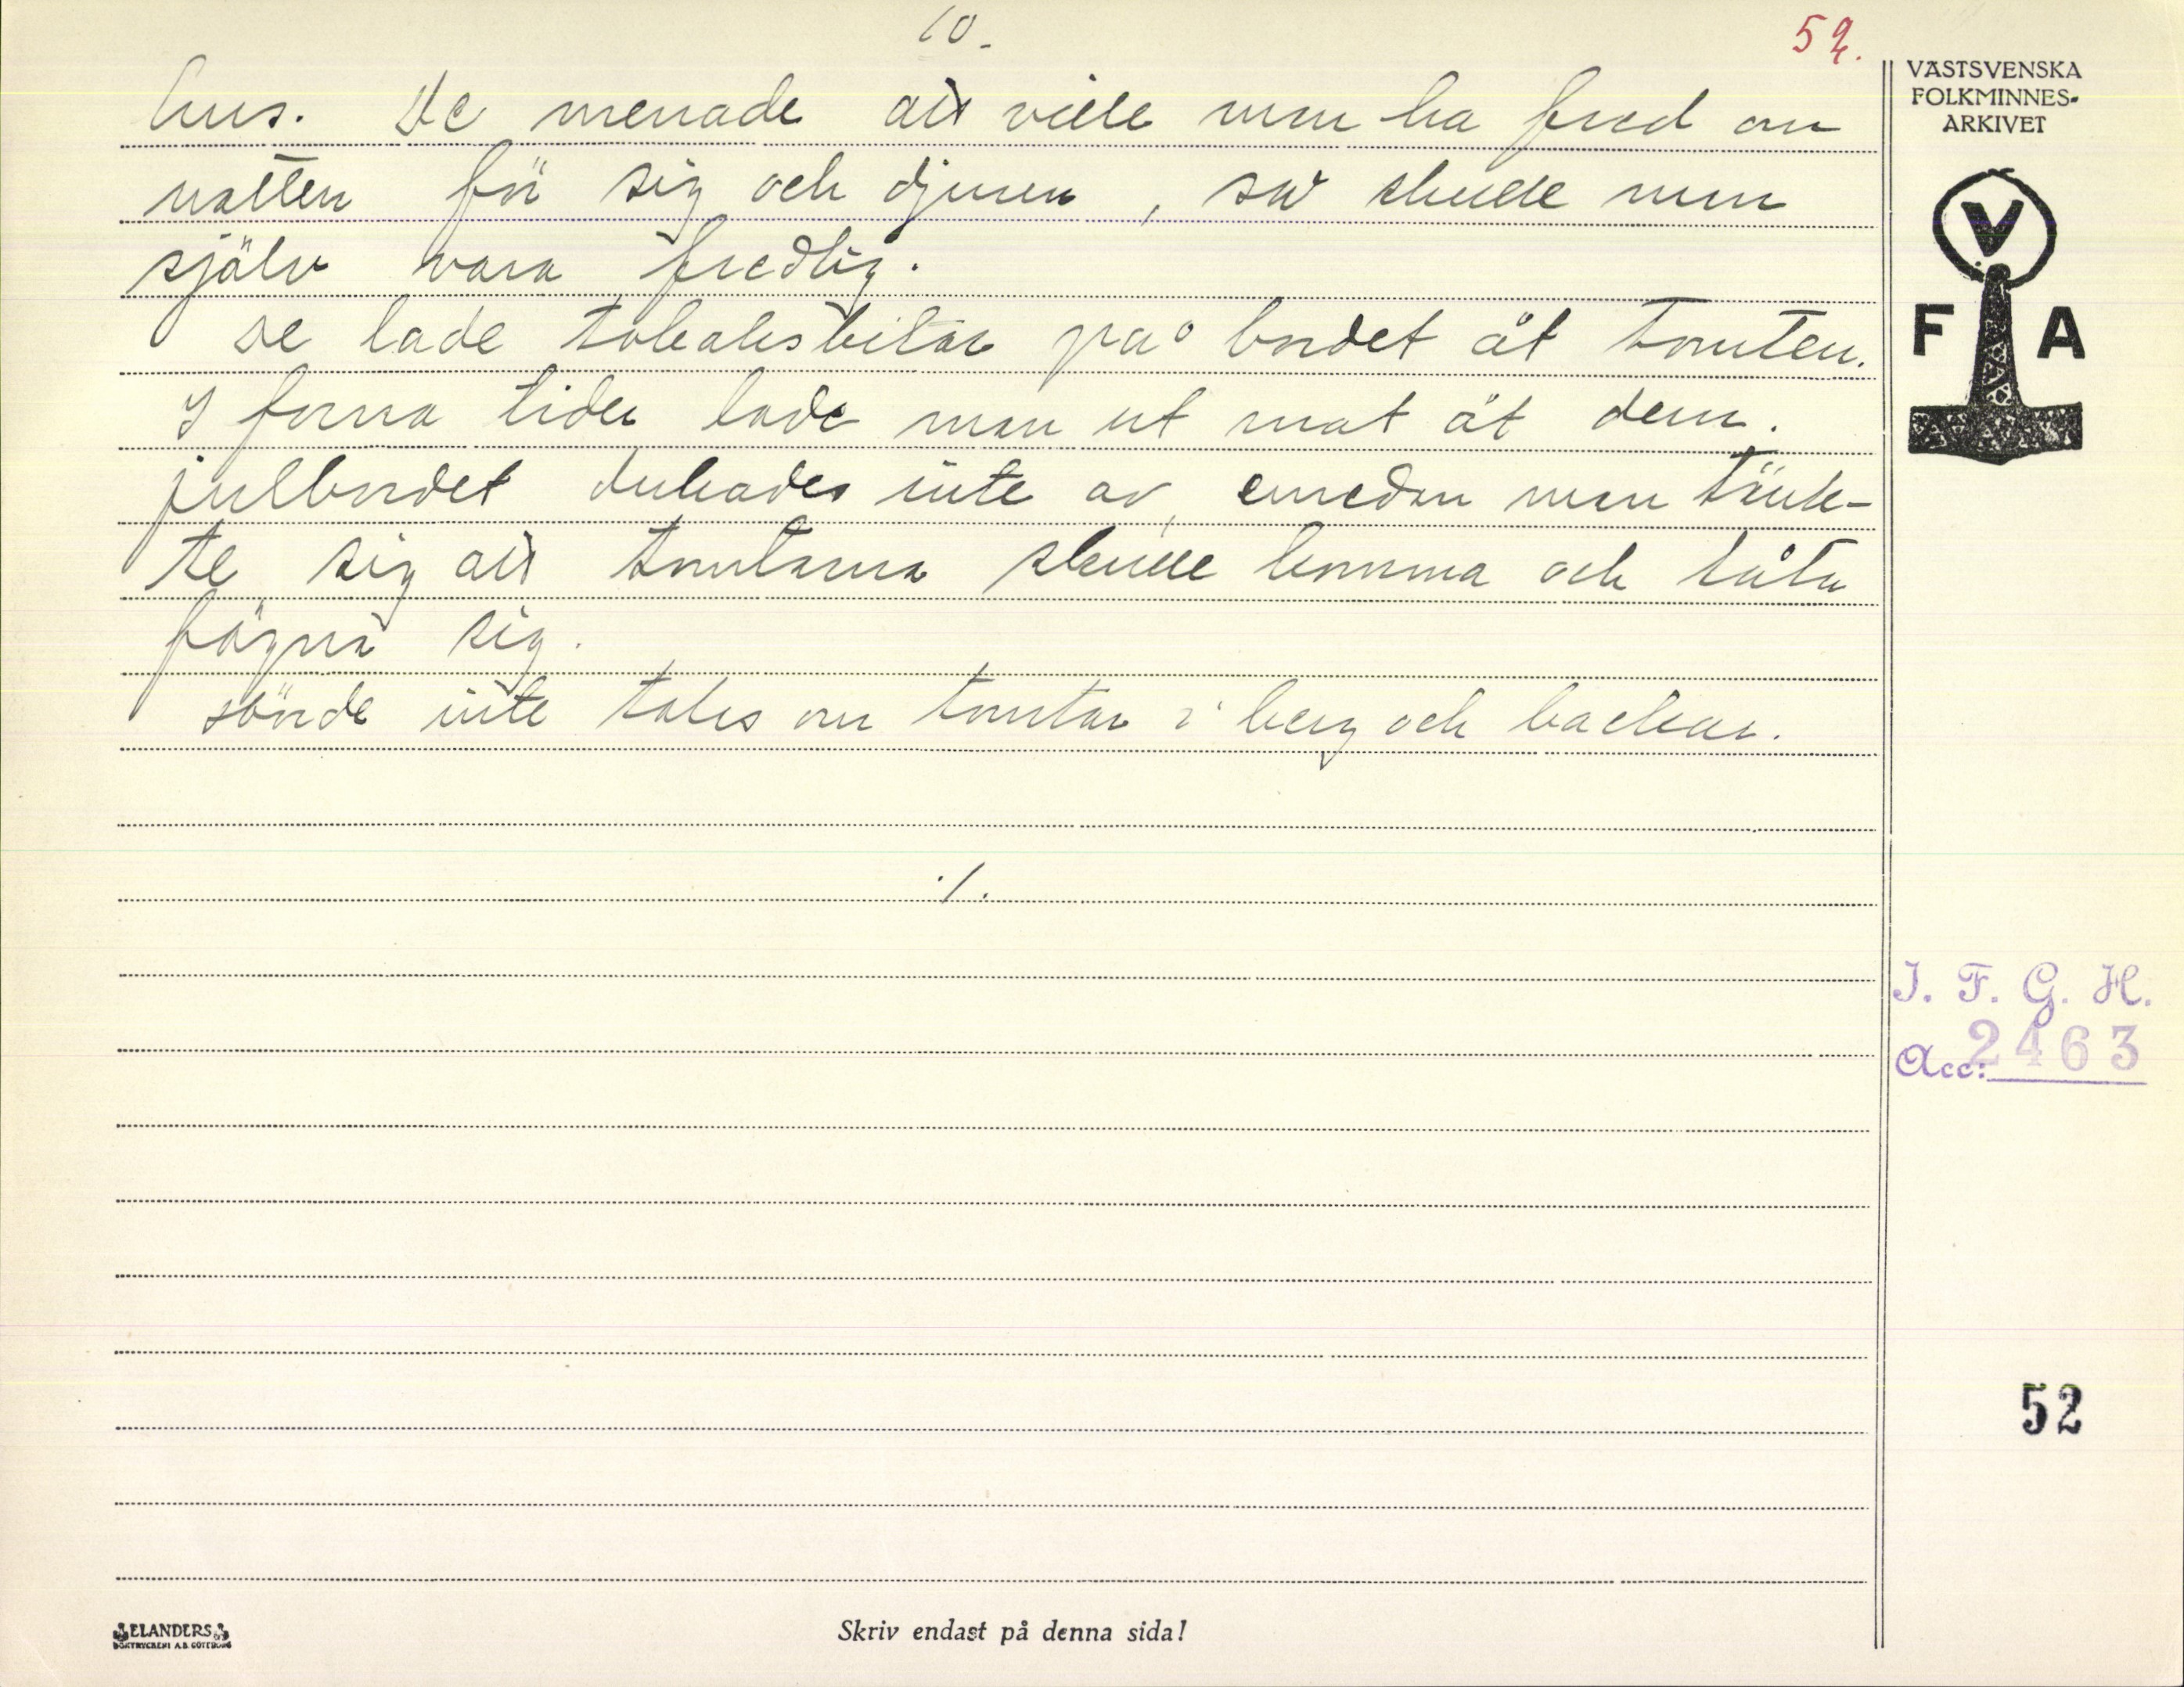 10.
52.
hus. De menade att ville man ha fred om
natten för sig och djuren, så skulle man
själv vara fredlig.
De lade tobaksbitar på bordet åt tomten.
I forna tider lade man ut mat åt dem.
julbordet dukades inte av, emedan man tänk-
te sig att tomtarna skulle komma och låta
fägna sig.
inte talas om tomtar i berg och backar.
./.
VÄSTSVENSKA
FOLKMINNES-
ARKIVET
V
F A
I. F. G. H.
Acc: 2463
52
ELANDERS
BOKTRYCKERI A.B. GÖTEBORG
Skriv endast på denna sida!